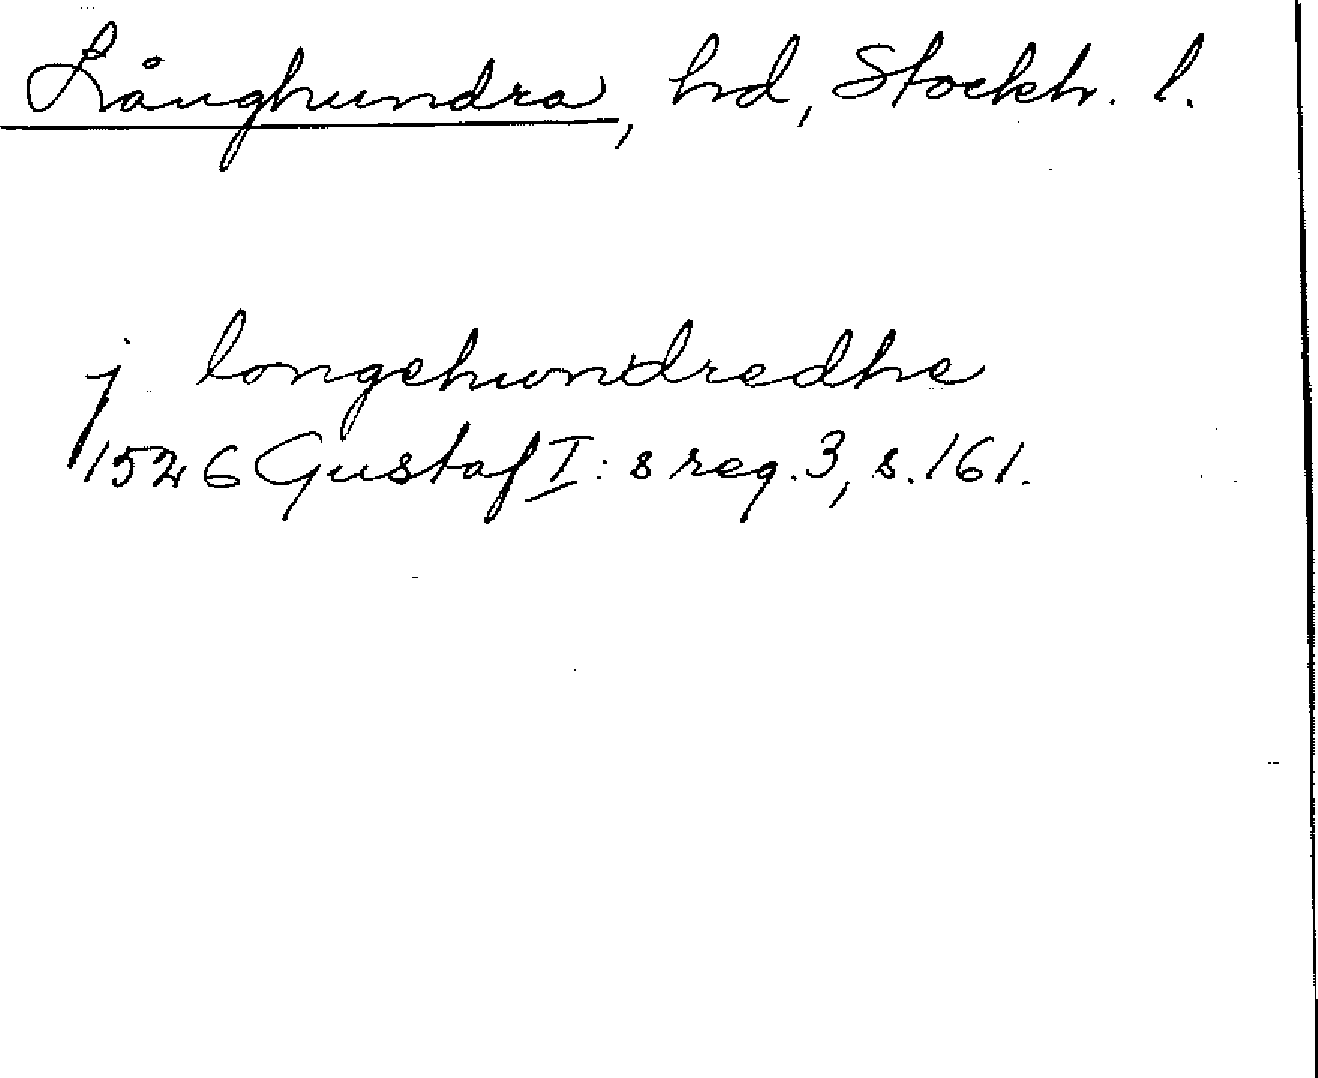 Långhundra, hd, Stockh. l.
j longehundredhe
1526 Gustaf I:s reg. 3, s. 161.